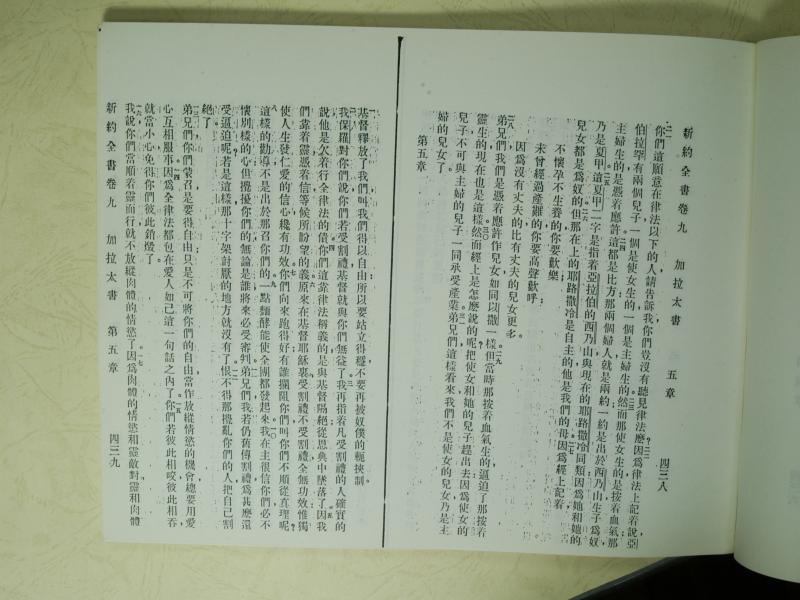 新約全書卷九 加拉太書 五章 四三八
你們這願意在律法以下的人請告訴我你們豈沒有聽見律法麽因爲律法上記着說亞
伯拉罕有兩個兒子一個是使女生的一個是主婦生的然而那使女生的是按着血氣那
主婦生的是憑着應許這都是比方那兩個婦人就是兩約一約是出於西乃山生子爲奴
乃是夏甲這夏甲二字是指着亞拉伯的西乃山與現在的耶路撒冷同類因爲她和她的
兒女都是爲奴的但那在上的耶路撒冷是自主的他是我們的母因爲經上記着
不懷孕不生養的你要歡樂
未曾經過產難的你要高聲歡呼
因爲沒有丈夫的比有丈夫的兒女更多
弟兄們我們是憑着應許作兒女如同以撒一樣但當時那按着血氣生的逼迫了那按着
靈生的現在也是這樣然而經上是怎麽說的呢把使女和她的兒子趕出去因爲使女的
兒子不可與主婦的兒子一同承受產業弟兄們這樣看來我們不是使女的兒女乃是主
婦的兒女了
第五章
基督釋放了我們叫我們得以自由所以要站立得穩不要再被奴僕的軛挾制
我保羅對你們說你們若受割禮基督就與你們無益了我再指着凡受割禮的人確實的
說他是欠着行全律法的債你們這靠律法稱義的是與基督隔絕從恩典中墜落了因我
們靠着靈憑着信等候所盼望的義原來在基督耶穌裏受割禮不受割禮全無功效惟獨
使人生發仁愛的信心纔有功效你們向來跑得好有誰攔阻你們叫你們不順從真理呢
這樣的勸導不是出於那召你們的一點麵酵能使全團都發起來我在主很信你們必不
懷別樣的心但攪擾你們的無論是誰將來必受審判弟兄們我若仍舊傳割禮爲甚麽還
受逼迫呢若是這樣那十字架討厭的地方就沒有了恨不得那攪亂你們的人把自己割
絕了
弟兄們你們蒙召是要得自由只是不可將你們的自由當作放縱情慾的機會總要用愛
心互相服事因爲全律法都包在愛人如己這一句話之內了你們若彼此相咬彼此相吞
就當小心免得你們彼此銷燬了
我說你們當順着靈而行就不放縱肉體的情慾了因爲肉體的情慾和靈敵對靈和肉體
新約全書卷九 加拉太書 第五章 四三九